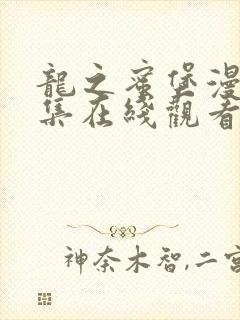 龍之家堡漫
集在綫觀看
神奈木智,二宮